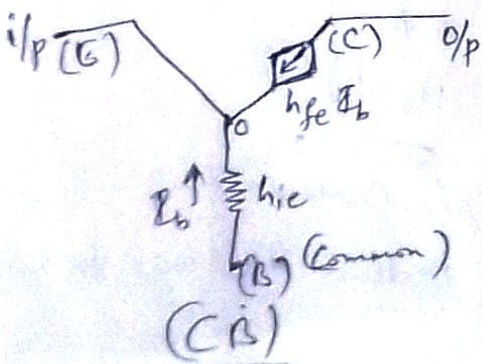 i/p (E) (C) o/p
h_fe I_b
o
I_b h_ie
(B) (Common)
(CB)